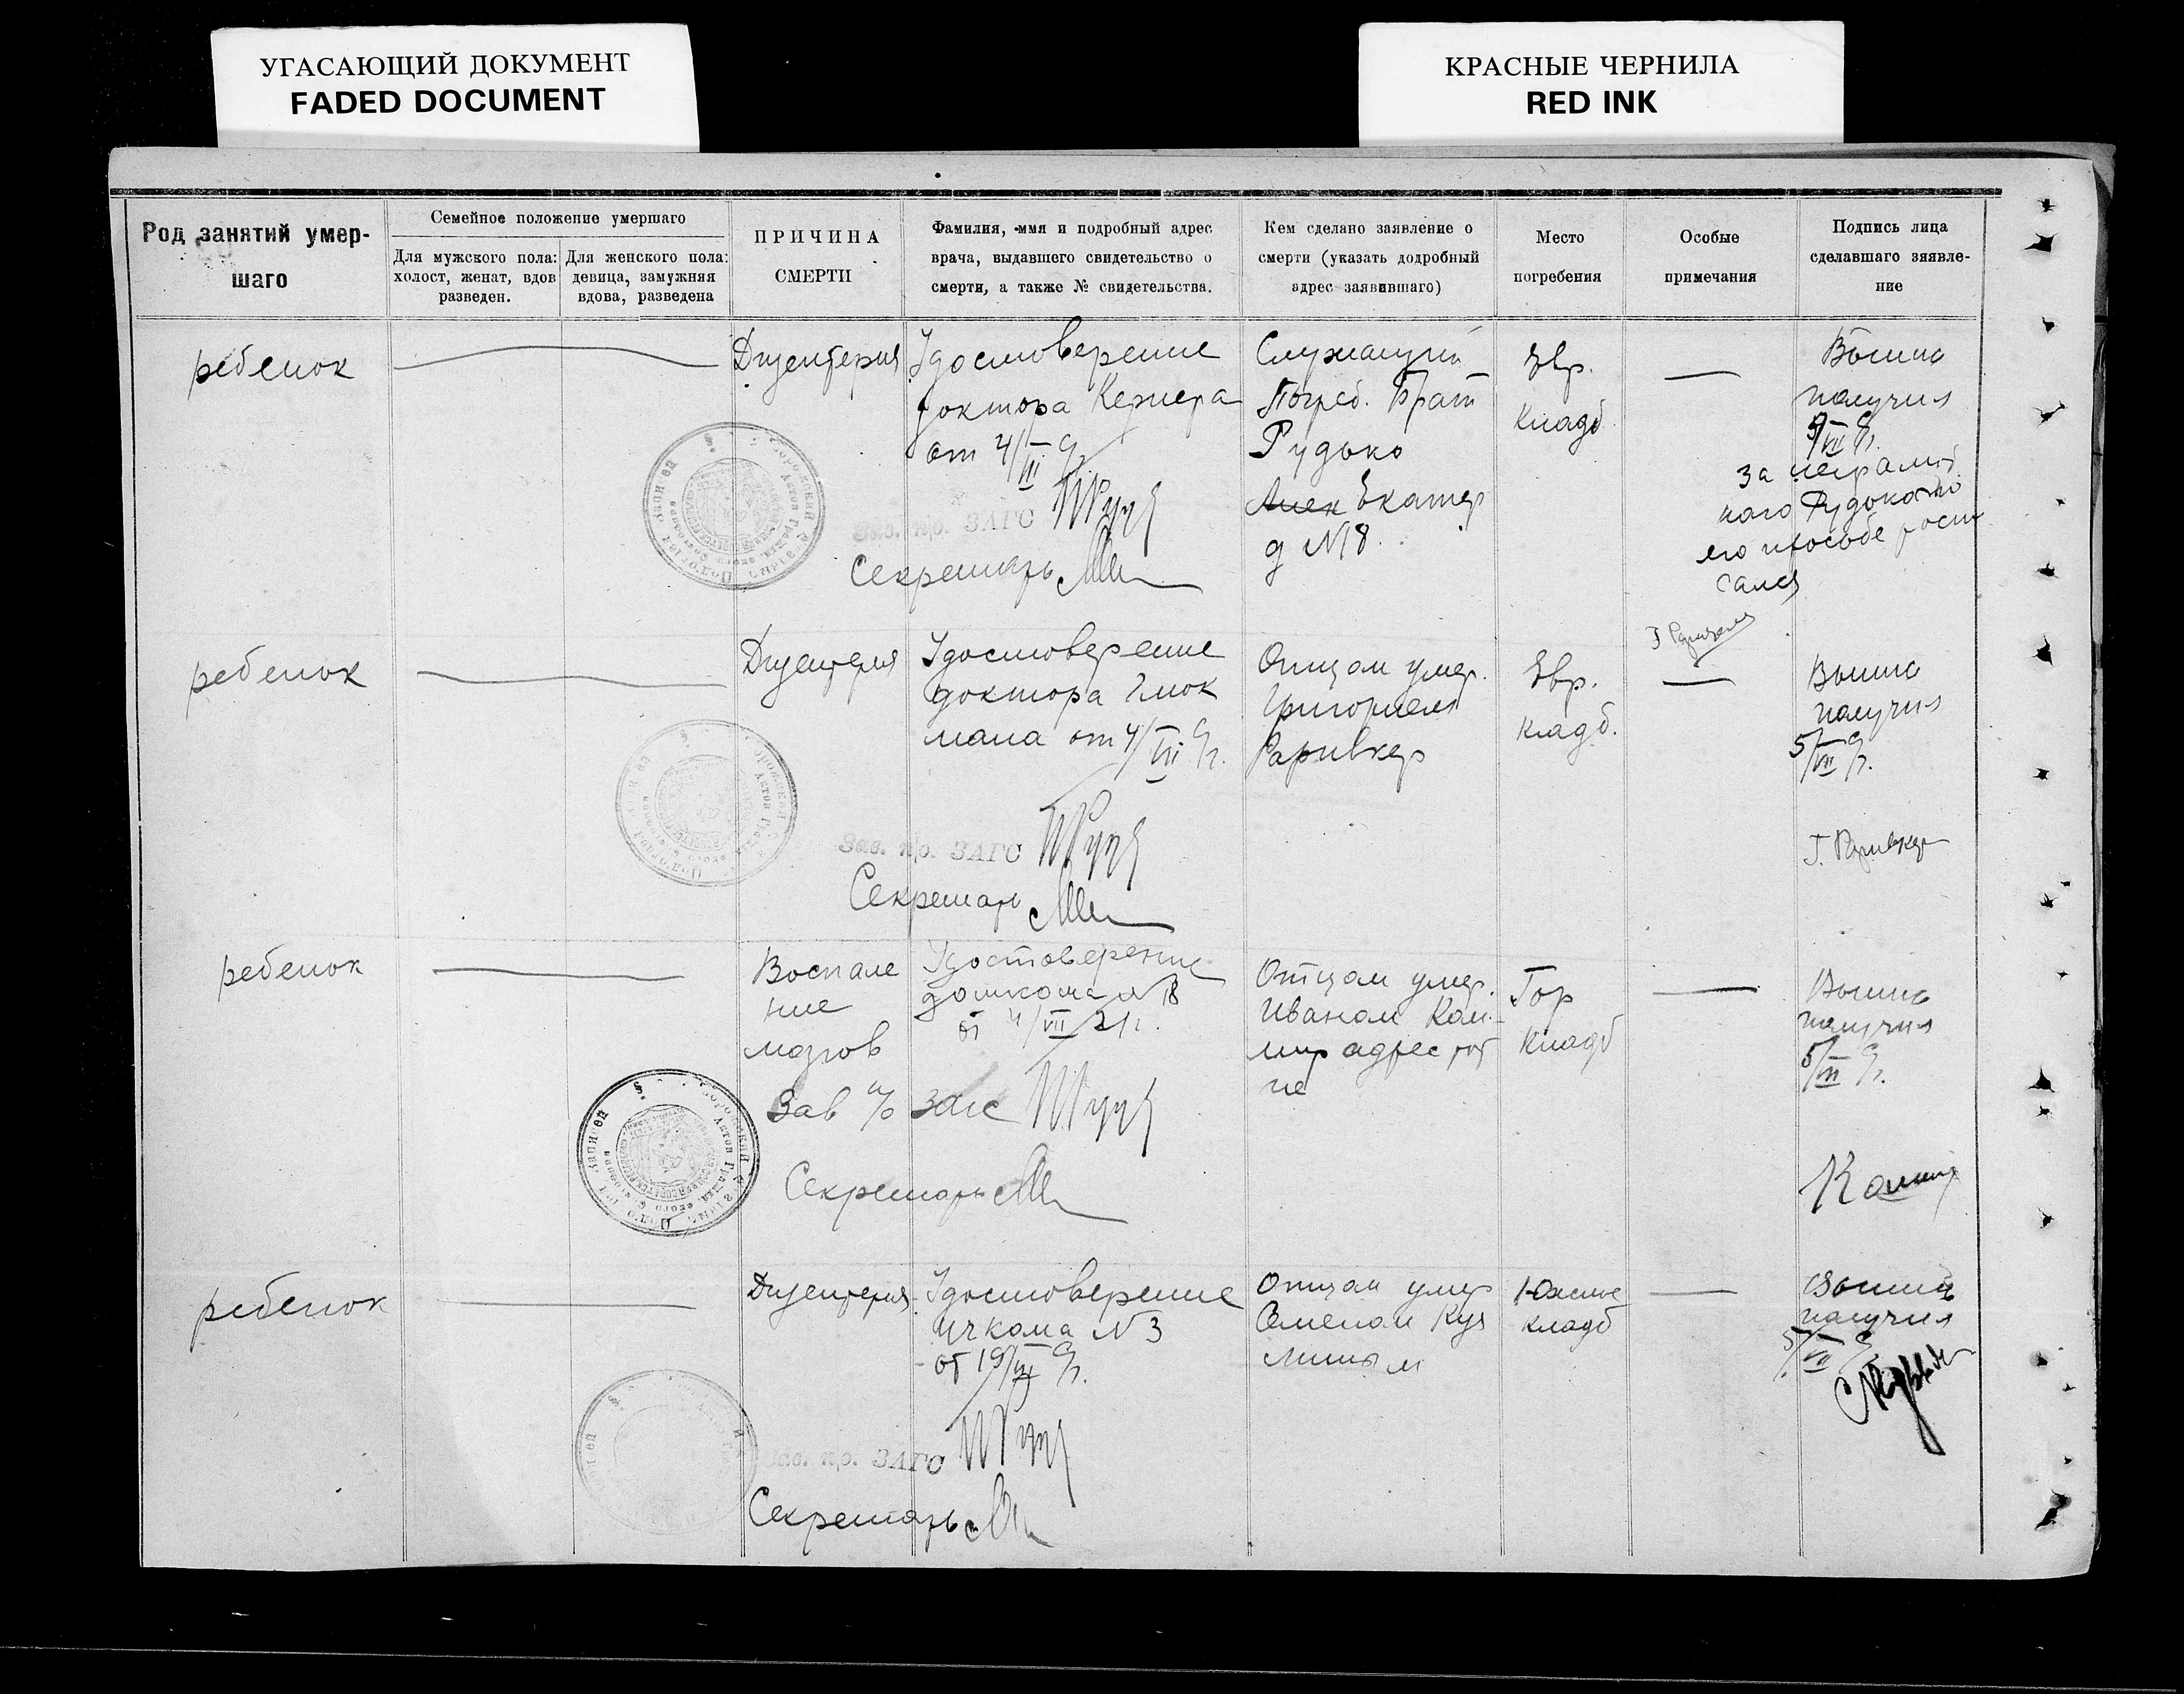 УГАСАЮЩИЙ ДОКУМЕНТ
FADED DOCUMENT
КРАСНЫЕ ЧЕРНИЛА
RED INK
Род занятий умер-
шаго
Семейное положение умершаго
Для мужского пола:
холост, женат, вдов
разведен.
Для женского пола:
девица, замужняя
вдова, разведена
ПРИЧИНА
СМЕРТИ
Фамилия, -ммя и подробный адрес
врача, выдавшего свидетельство о
смерти, а также № свидетельства.
Кем сделано заявление о
смерти (указать додробный
адрес заявившаго)
Место
погребения
Особые
примечания
Подпись лица
сделавшаго зяявле-
ние
ребенок
Дизентерия
Удостоверение
доктора Кернера
от 4/VII
Зав. пр. ЗАГС
Секретарь
Служащий
Погреб. Брат
Рудько
Екатер
д N18
Евр.
кладб
Выпис
получил
5/VII
за неграмот
ного Рудько по
его просьбе роспи
сался
ребенок
Дизентерия
Удостоверение
доктора Глок
мана от 4/VII
Зав. пр. ЗАГС
Секретарь
Отцом умер.
Григорием
Раривкер
Евр.
кладб.
Выпис
получил
5/VII
ребенок
Воспале
ние
мозгов
Удостоверение
домкома N 18
от 4/VII 21г.
Зав п/о Загс
Секретарь
Отцом умер.
Иваном Каш-
мир адрес тот
же
Гор
кладб
Выпис
получил
5/VII
ребенок
Дизентерия
Удостоверение
N 3
от
Зав. пр. ЗАГС
Секретарь
Отцом умер
Семеном Куз
миным
Южное
кладб
Выпись
получил
5/VII